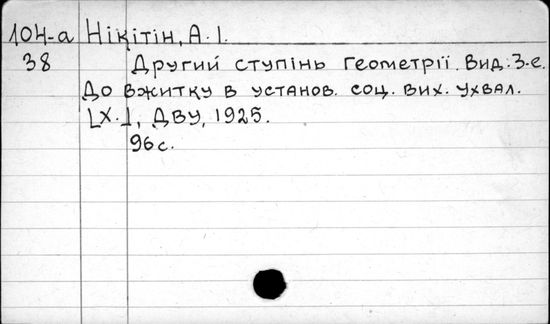 104-а Нікітін, А. І.
38 Другий ступінь геометрії. Вид. 3-е.
До вжитку в установ. соц. вих. ухвал.
[Х.], ДВУ, 1925.
96 с.